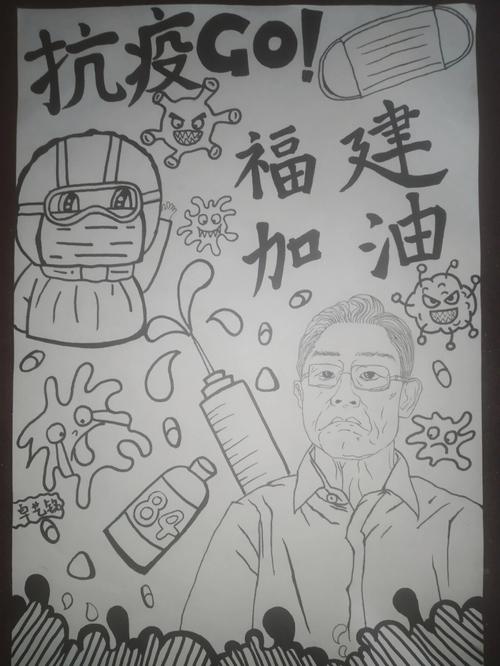 抗疫GO!
福建
加油
84